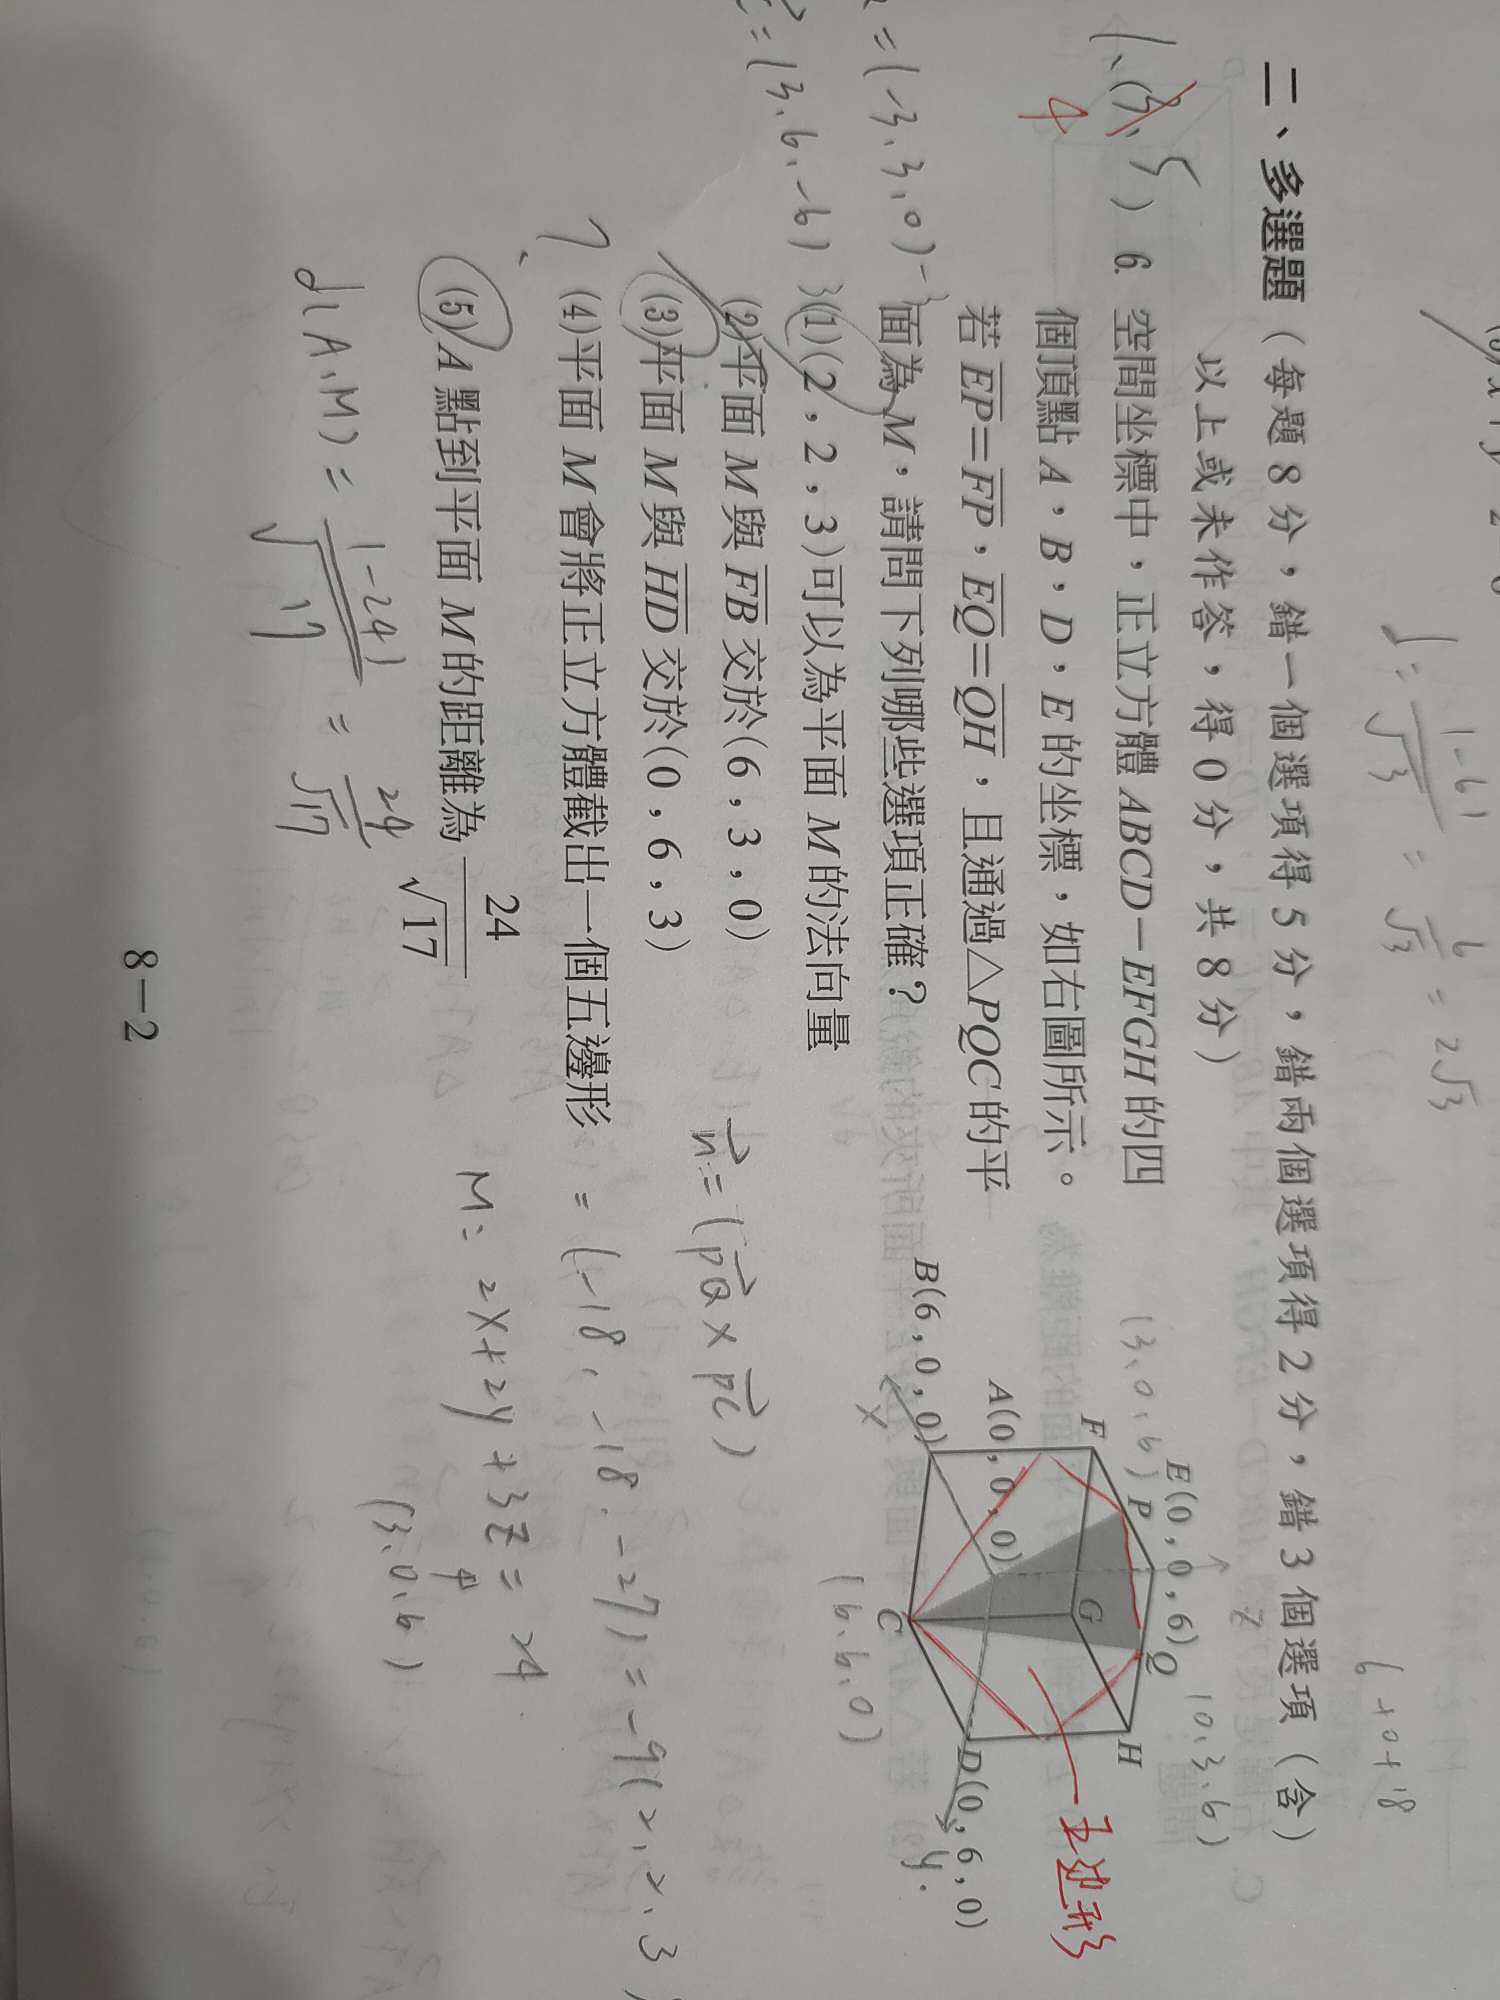 d = |-6| / √3 = 6/√3 = 2√3
6+0+18
二、多選題（每題 8 分，錯一個選項得 5 分，錯兩個選項得 2 分，錯 3 個選項（含）
以上或未作答，得 0 分，共 8 分）
1、(3、5 ) 6. 空間坐標中，正立方體 ABCD－EFGH 的四
4
個頂點 A，B，D，E 的坐標，如右圖所示。
若 EP＝FP，EQ＝QH，且通過△PQC 的平
面為 M，請問下列哪些選項正確？
(1)(2，2，3)可以為平面 M 的法向量
(2)平面 M 與 FB 交於(6，3，0)
(3)平面 M 與 HD 交於(0，6，3)
(4)平面 M 會將正立方體截出一個五邊形
(5)A 點到平面 M 的距離為 24/√17
E(0，0，6)
z
Q
(0,3,6)
(3,0,6)
P
F
H
G
A(0，0，0)
B(6，0，0)
x
C
(6,6,0)
D(0，6，0)
y
五边形
=(-3,3,0)
=(3,6,-6)
n = (PQ × PC)
= (-18, -18, -27) = -9(2,2,3)
M: 2x+2y+3z = 24
(3,0,6)
d(A,M) = |-24| / √17 = 24/√17
8－2